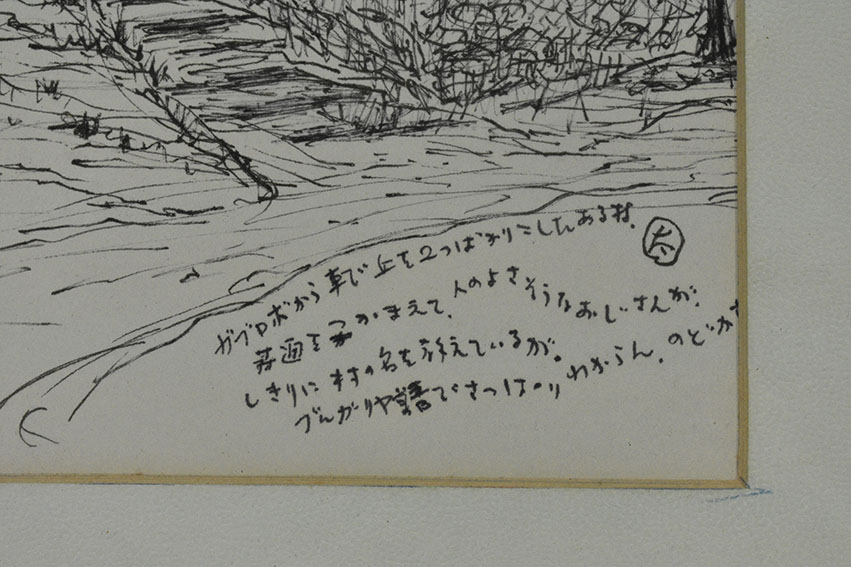 ガブロボから車で丘を2つばかりこしたある村。
をつかまえて、人のよさそうなおじさんが、
しきりに村の名を教えているが。
ブルガリヤ語でさっぱりわからん。のどか